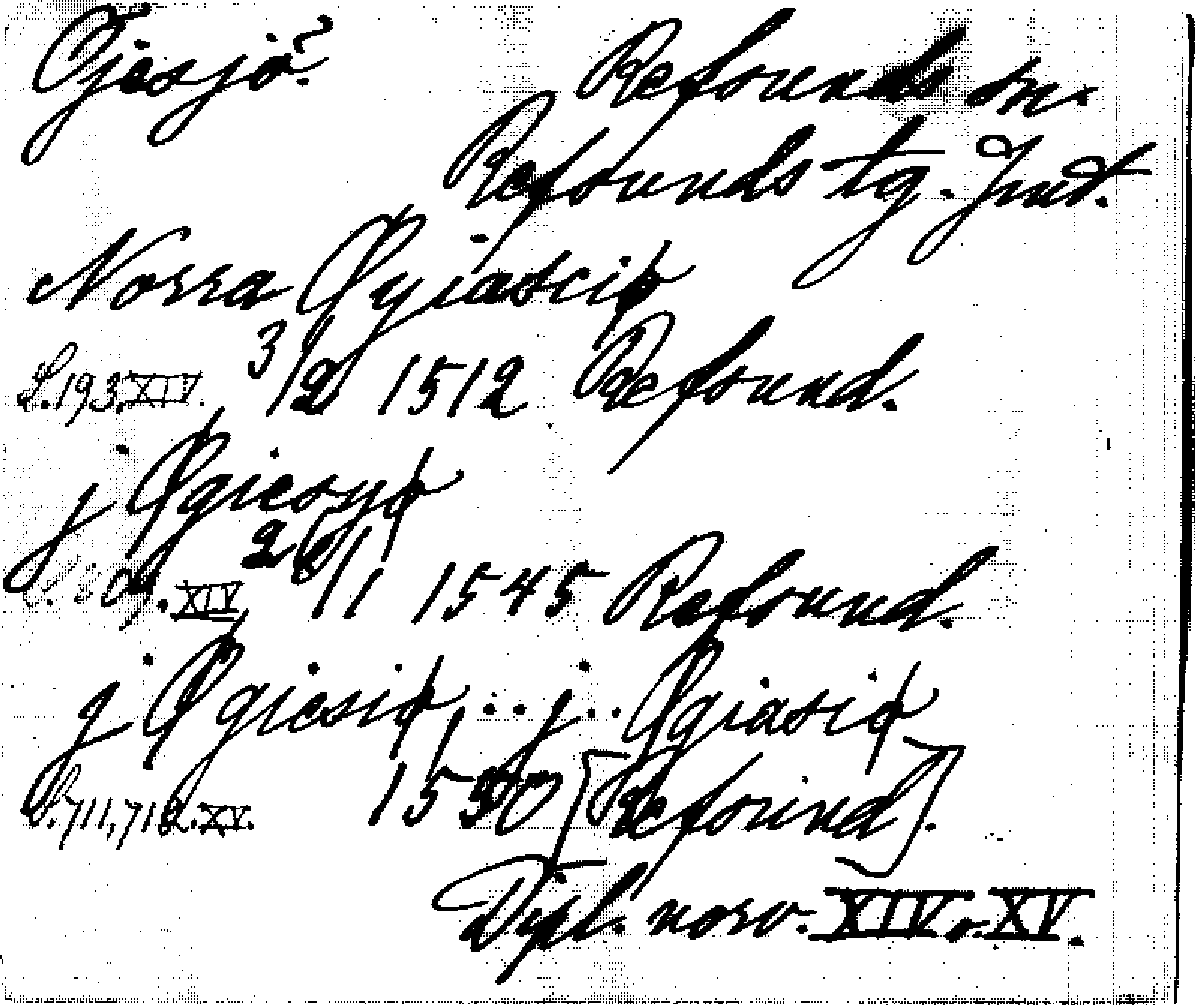 Öjesjö? Refsunds sn.
Refsunds tg. Jmt.
Norra Øyiasciø
S.193.XIV. 3/2 1512 Refsund.
j Øgiesyø
XIV 26/1 1545 Refsund.
j Øgiesiø... j.. Øgiasiø
S.711,712.XV. 1550 [Refsund].
Dipl. norv. XIV o. XV.